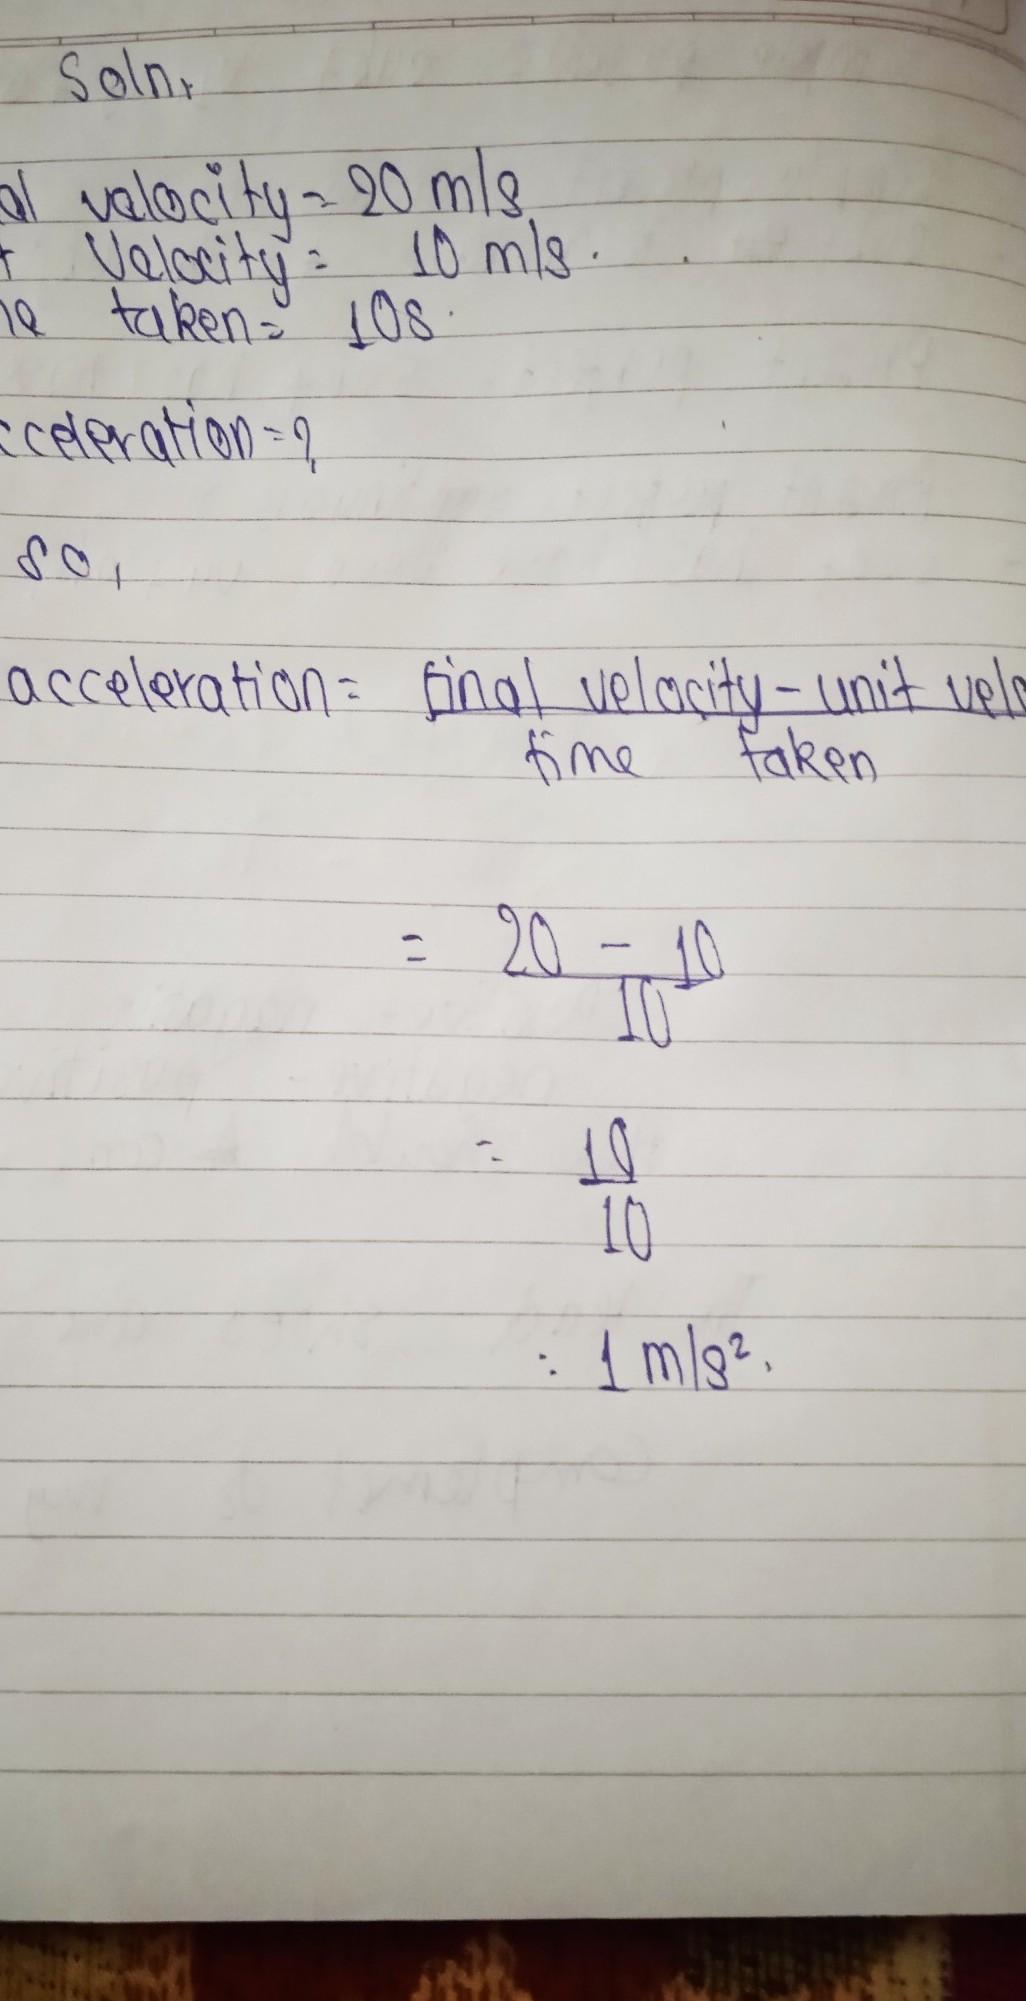 Soln,
al velocity = 20 m/s
t Velocity = 10 m/s.
ne taken = 10s.
cceleration = ?
so,
acceleration = final velocity - unit velo
time taken
= 20 - 10
10
= 10
10
: 1 m/s².